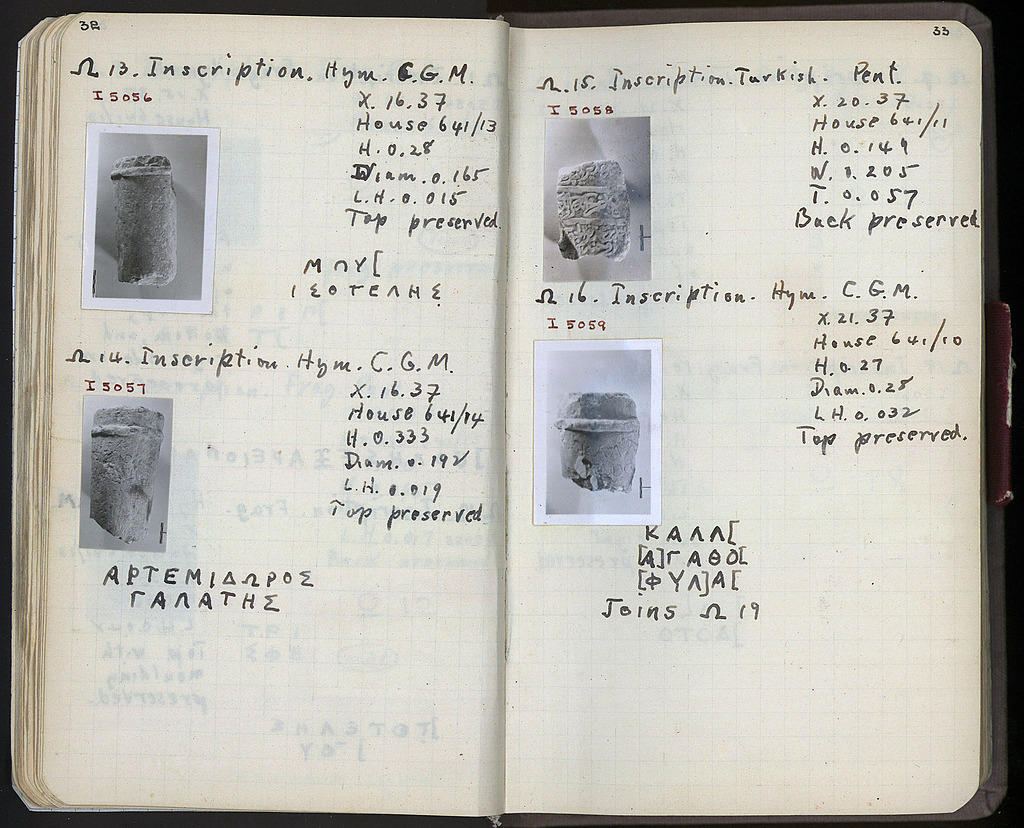 32
Ω 13. Inscription. Hym. C.G.M.
I 5056
X. 16.37
House 641/13
H. 0.28
Diam. 0.165
L.H. 0.015
Top preserved.
ΜΠΥ[
ΙΣΟΤΕΛΗΣ
Ω 14. Inscription. Hym. C.G.M.
I 5057
X. 16.37
House 641/14
H. 0.333
Diam. 0.192
L.H. 0.019
Top preserved
ΑΡΤΕΜΙΔΩΡΟΣ
ΓΑΛΑΤΗΣ
33
Ω. 15. Inscription. Turkish. Pent.
I 5058
X. 20.37
House 641/11
H. 0.149
W. 0.205
T. 0.057
Back preserved
Ω 16. Inscription. Hym. C.G.M.
I 5059
X. 21.37
House 641/10
H. 0.27
Diam. 0.28
L.H. 0.032
Top preserved.
ΚΑΛΛ[
[Α]ΓΑΘΟ[
[ΦΥΛ]Α[
Joins Ω 19